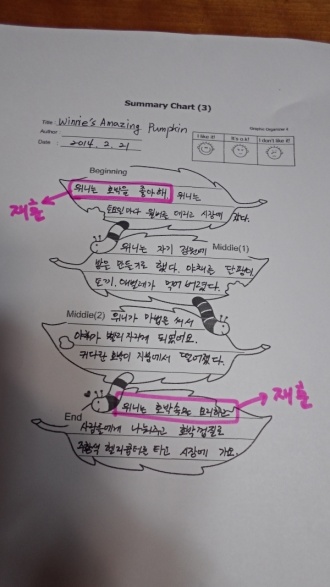 Summary Chart (3)
Graphic Organizer 4
Title : Winnie's Amazing Pumpkin
Author :
Date : 2014. 2. 21
I like it!
It's o.k!
I don't like it!
Beginning
위니는 호박을 좋아해 위니는
토요일마다 윌버를 데리고 시장에 갔다.
재훈
Middle(1)
위니는 자기 정원에
밭을 만들기로 했다. 야채는 단
토끼, 애벌레가 먹어 버렸다.
Middle(2)
위니가 마법을 써서
야채가 빨리 자라게 되었어요.
커다란 호박이 지붕에서 떨어졌다.
End
위니는 호박속을 요리하고
재훈
사람들에게 나눠주고 호박껍질로
주황색 헬리콥터를 타고 시장에 가요.